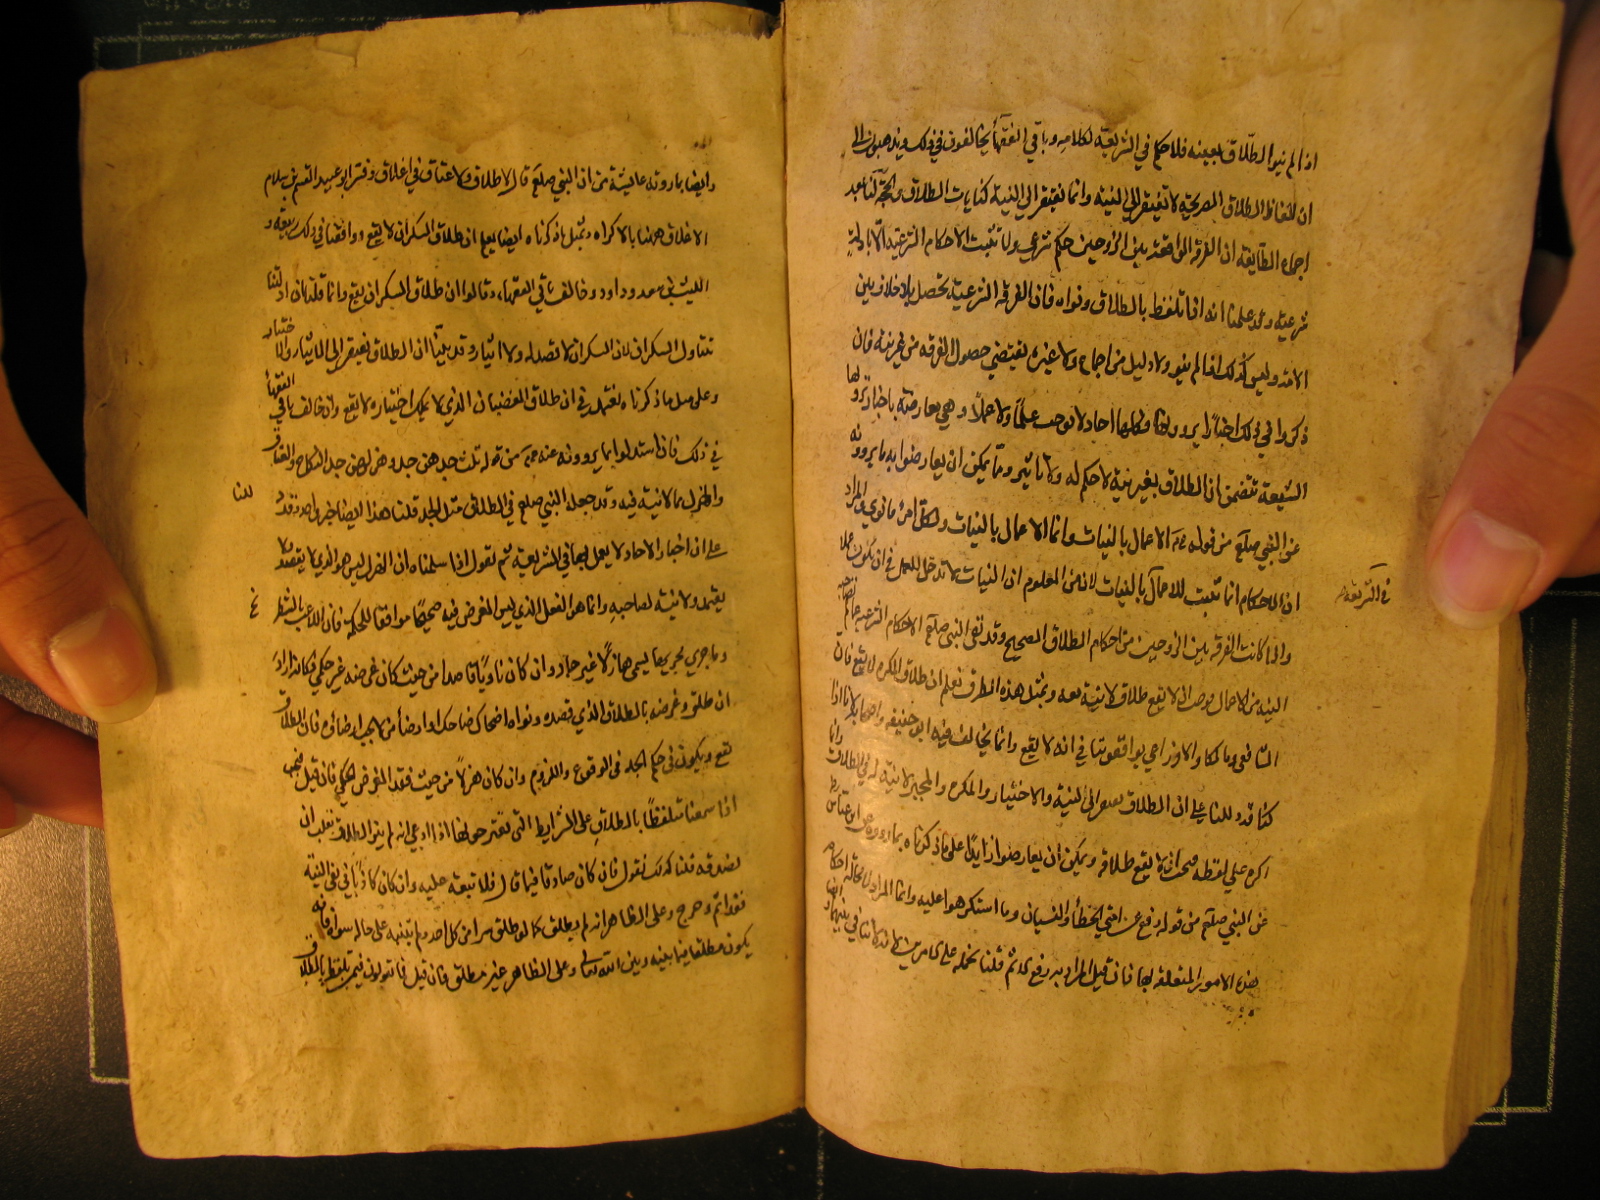 اذا لم ينو الطلاق بعينه فلا حكم في الشريعة لكلامه وباقي الفقهآء يخالفون في ذلك ويذهبون الى
ان الفاظ الطلاق الصريحة لا تفتقر الى النية وانما تفتقر الى النية كنايات الطلاق والحجة لنا بعد
اجماع الطايفة ان الفرقة الواقعة بين الزوجين حكم شرعي ولا تثبت الاحكام الشرعية الا بادلة
شرعية وقد علمنا انه اذا تلفظ بالطلاق ونواه فان الفرقة الشرعية تحصل بلا خلاف بين
الامة وليس كذلك اذا لم ينو ولا دليل من اجماع ولا غيره يقتضي حصول الفرقة من غير نية فان
ذكروا في ذلك اخبارًا يروونها فكلها احاد لا توجب علمًا ولا عملًا وهي معارضة باخبار تروِيها
الشيعة تتضمن ان الطلاق بغير نية لا حكم له ولا تاثير ومما يمكن ان يعارضوا به ما يروونه
عن النبي صلعم من قوله الاعمال بالنيات وانما الاعمال بالنيات ولكل امرئ ما نوى والمراد
ان الاحكام انما تثبت للاعمال بالنيات لان من المعلوم ان النيات لا تدخل العمل في ان يكون عملا
في الشريعة
واذا كانت الفرقة بين الزوجين من احكام الطلاق الصحيح وقد نفى النبي صلعم الاحكام الشرعية عما لم تصحبه
النية من الاعمال وجب ان لا يقع طلاق لا نية معه وبمثل هذه الطرق نعلم ان طلاق المكره لا يقع فان
الشافعي ومالكا والاوزاعي يوافقوننا في انه لا يقع وانما يخالف فيه ابو حنيفه واصحابه لانا اذا
كنا قد دللنا على ان الطلاق يفتقر الى النية والاختيار والمكره والمجبر لا نية له في الطلاق وانما
اكره على لفظه صح انه لا يقع طلاقه ويمكن ان يعارضوا زايدًا على ما ذكرناه بما رووه عن ابن عباس
عن النبي صلعم من قوله رفع عن امتي الخطأ والنسيان وما استكرهوا عليه وانما المراد لا محالة احكام
هذه الامور المتعلقة بها فان قيل المراد به رفع الاثم قلنا نحمله على الامرين لانه لا تنافي بينهما
وايضا بما روته عايشة من ان النبي صلعم قال لا طلاق ولا عتاق في اغلاق وفسر ابو عبيد القسم بن سلام
الاغلاق ههنا بالاكراه وبمثل ما ذكرناه ايضا نعلم ان طلاق السكران لا يقع ووافقنا في ذلك ربيعة و
الليث بن سعد وداود وخالف باقي الفقهاء وقالوا ان طلاق السكران يقع وانما قلنا ان ادلتنا
تتناول السكران لان السكران لا قصد له ولا ايثار وقد بينا ان الطلاق يفتقر الى الايثار والاختيار
وعلى مثل ما ذكرناه نعتمد في ان طلاق الغضبان الذي لا يملك اختياره لا يقع وان خالف باقي الفقهآ
في ذلك فان استدلوا بما يروونه عنه من قوله ثلث جدهن جد وهزلهن جد النكاح والطلاق
والهزل مما لا نية فيه وقد جعله النبي صلعم في الطلاق مثل الجد قلنا هذا ايضا خبر واحد وقد دللنا
على ان اخبار الاحاد لا يعمل بها في الشريعة ثم نقول اذا سلمناه ان الهزل ليس هو الذي لا يقصد ولا
يعتمد ولا نية لصاحبه وانما هو الفعل الذي ليس الغرض فيه صحيحًا موافقا للحكمة فان اللاعب بالشطرنج
وما جرى مجريها يسمى هازلًا غير جاد وان كان ناويًا قاصدا من حيث كان غرضه غير حكمي فكانه اراد
ان طلق وغرضه بالطلاق الذي قصده ونواه اضحاك ضاحك او ارضآء من لا يجب ارضاؤه فان الطلاق
يقع ويكون في حكم الجد في الوقوع واللزوم وان كان هزلًا من حيث فقد الغرض الحكمي فان قيل فيجب
اذا سمعنا متلفظًا بالطلاق على الشرايط التي تعتبرونها اذا ادعى انه لم ينو الطلاق بقلبه ان
نصدقه قلنا كذلك نقول فان كان صادقا فيما قال فلا تبعة عليه وان كان كاذبًا في نفي النية
فقد اثم وحرج وعلى الظاهر انه لم يطلق كما لو طلق سرا من كل احد ولم يتنبه على حاله سواه فانه
يكون مطلقا فيما بينه وبين الله تعالى وعلى الظاهر غير مطلق فان قيل فما تقولون فيمن تلفظ بالطلاق